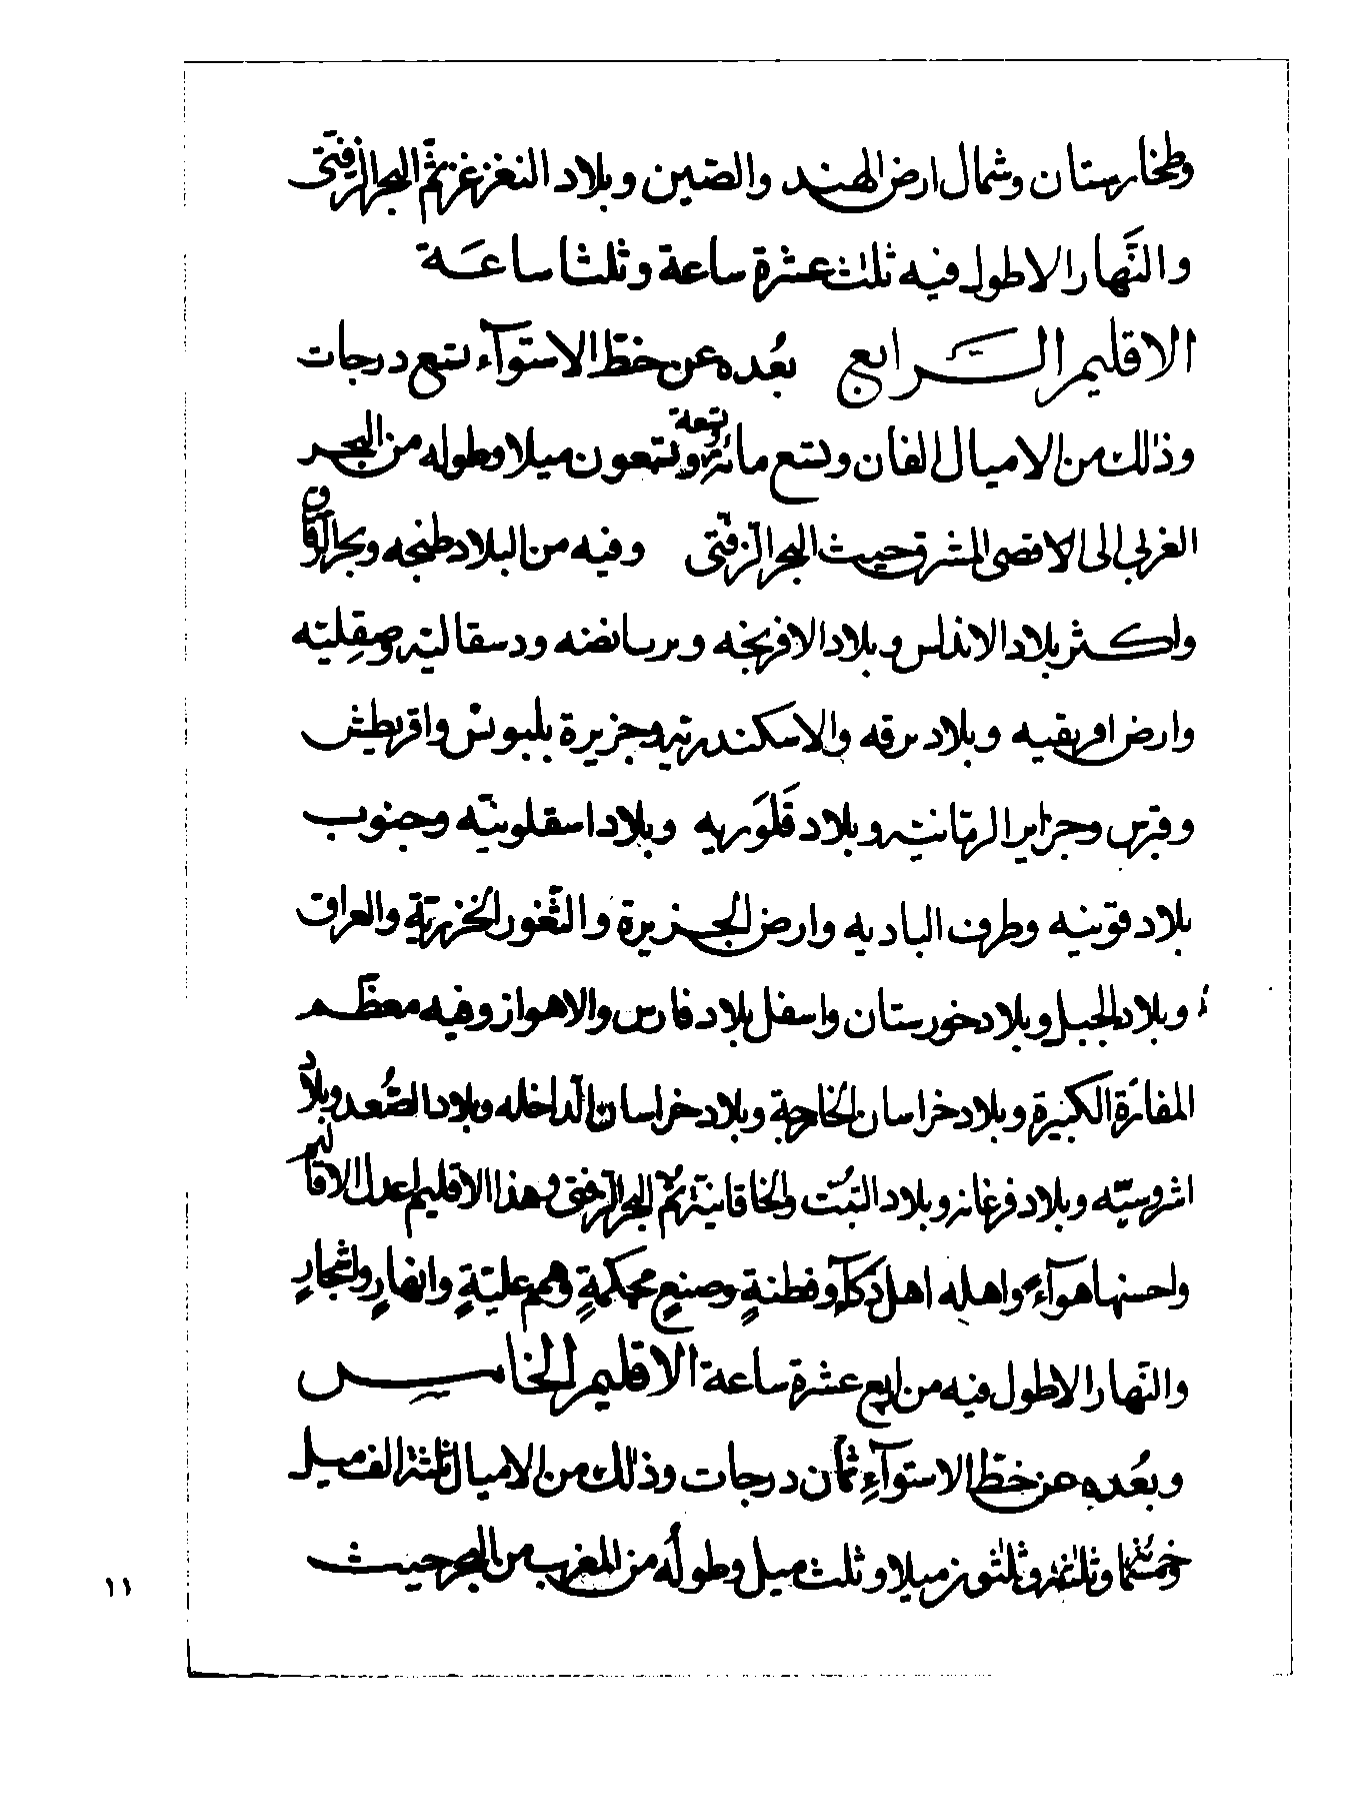 وطخارستان وشمال ارض الهند والصين وبلاد التغزغز ثمّ البحر الزفتى
والنَّهار الاطول فيه ثلث عشرة ساعة وثلثا ساعَة
الاقليم الرابع بعُده عن خطّ الاستوآء تسع درجات
وذلك من الاميال الفان وتسع مائة وتسعة وتسعون ميلا وطوله من البحر
الغربي الى الاقصى المشرق حيث البحر الزفتى وفيه من البلاد طنجه وبحر الرقاق
واكثر بلاد الاندلس وبلاد الافرنجه وبرسانضه ودسقاليّه وصِقِليّه
وارض افريقيه وبلاد برقه والاسكندريّه وجزيرة بلبونس واقريطيش
وقبرس وجزاير الرمّانيّه وبلاد قَلَوَريه وبلاد اسقلونيّه وجنوب
بلاد قونيه وطرف الباديه وارض الجزيرة والثّغور الخزريّة والعراق
وبلاد الجبل وبلاد خورستان واسفل بلاد فارس والاهواز وفيه معظّم
المفازة الكبيرة وبلاد خراسان الخارجة وبلاد خراسان الدّاخله وبلاد الصُّغد وبلاد
اشروسيّه وبلاد فرغانه وبلاد التبُّت والخاقانيّة ثمّ البحر الزفتى وهذا الاقليم اعدل الاقاليم
واحسنها هوآءً واهله اهل ذكآءٍ وفطنةٍ وصنعٍ محكمةٍ وهممٍ عليّةٍ وانهارٍ واشجارٍ
والنّهار الاطول فيه من اربع عشرة ساعة الاقليم الخامس
وبعُده عن خطّ الاستوآءِ ثمان درجات وذلك من الاميال ثلثة الف ميل
وخمسمائة وثلثة وثلثون ميلا وثلث ميل وطولُه من المغرب من البحر حيث
١١